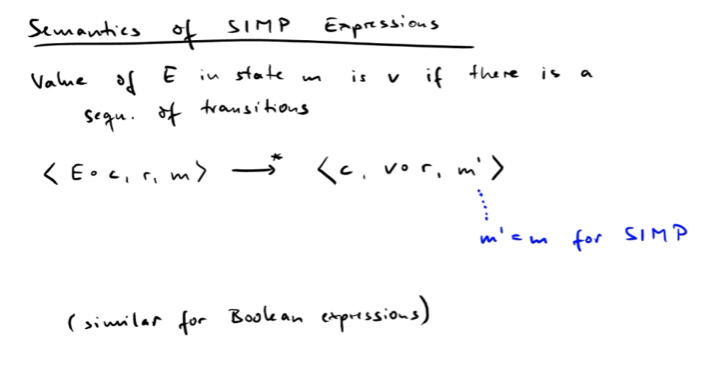 Semantics of SIMP Expressions
Value of E in state m is v if there is a
sequ. of transitions
⟨ E ∘ c, r, m ⟩ →* ⟨ c, v ∘ r, m' ⟩
m' = m for SIMP
(similar for Boolean expressions)